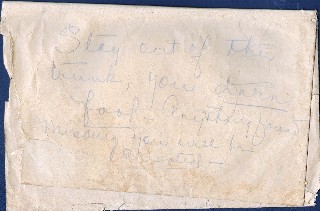 Stay out of this
trunk, you damn
fool. Anything found
missing you will be